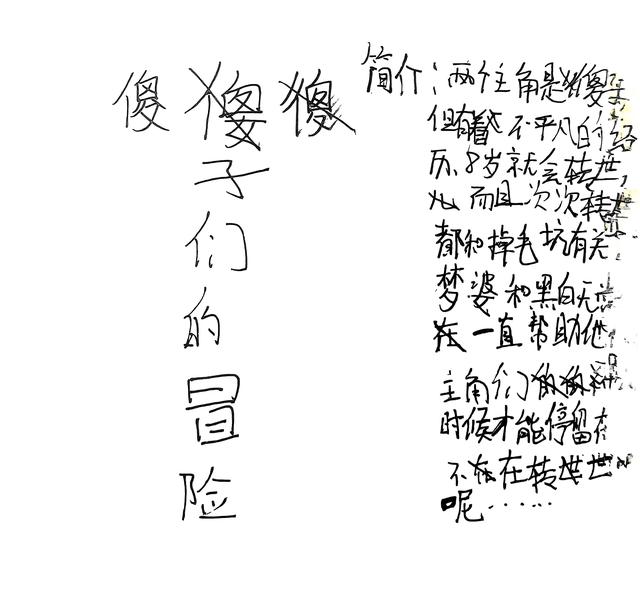 傻 傻
子
们
的
冒
险
简介：两个主角是
但有着不平凡的经
历，8岁就会转世，
而且次次转
都和掉毛坑有关
梦婆和黑白无
在一直帮助他
主角们
时候才能停留在
不在转世
呢……